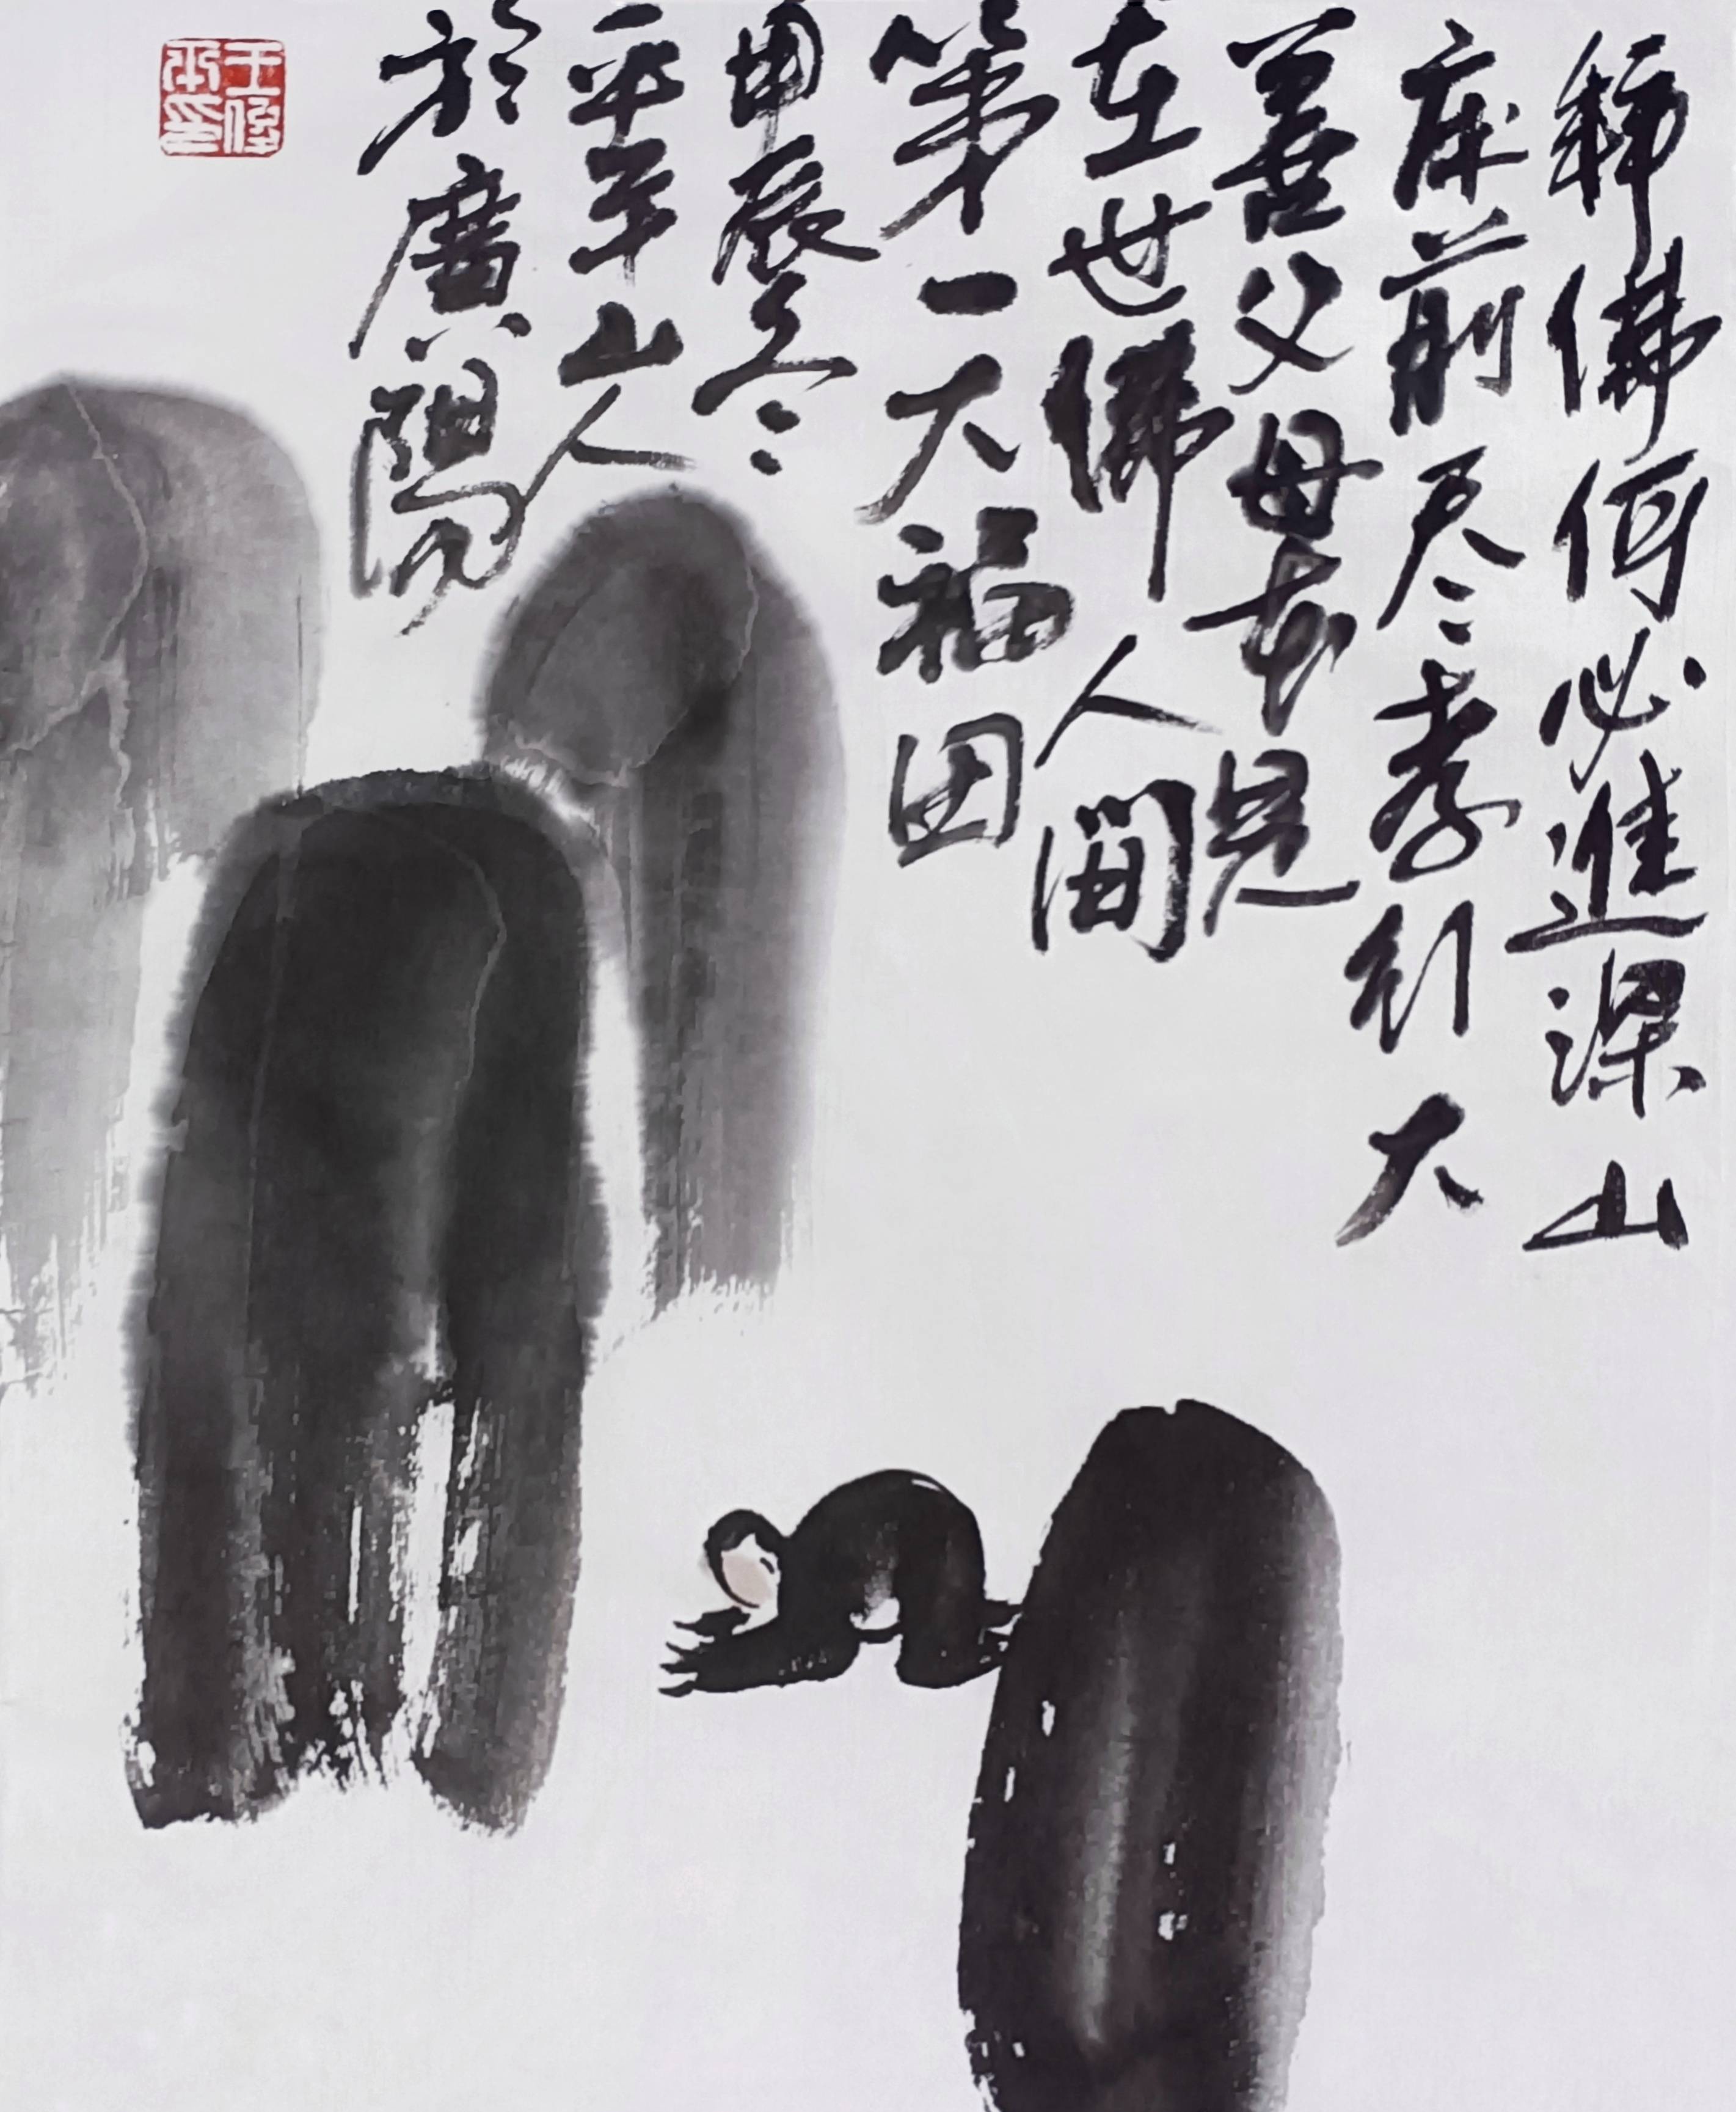 拜佛何必進深山
床前尽孝行大
善父母本是
在世佛人間
第一大福田
甲辰冬
平平山人
於廣陽